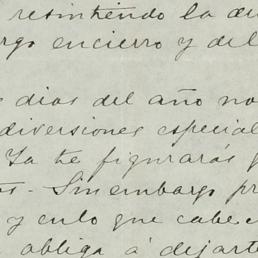 resintiendo la de
rgo encierro y del
s dias del año no
diversiones especial
Ya te figurarás
os - Sin embargo pr
y culo que cabe.
obliga á dejarte